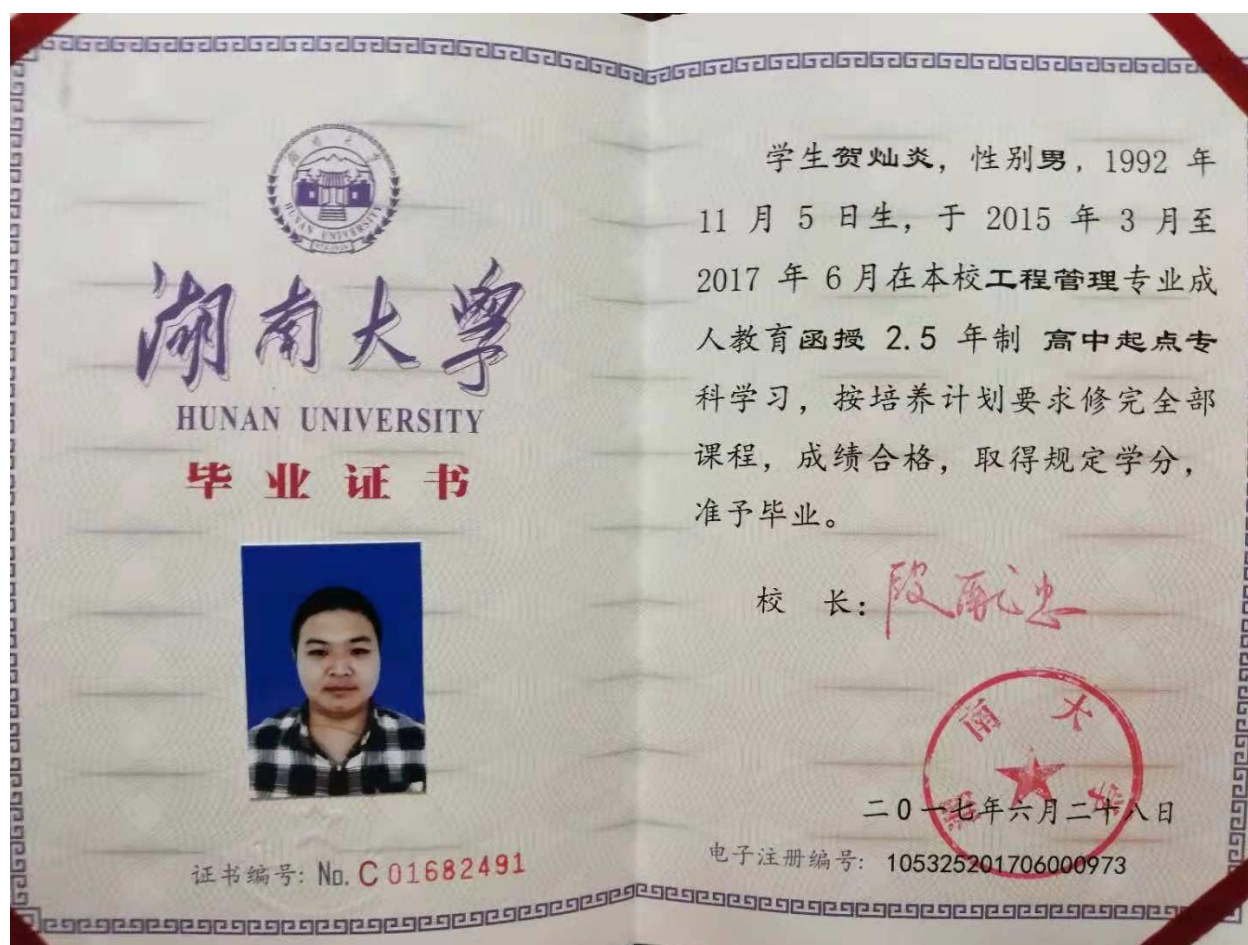 湖南大学
HUNAN UNIVERSITY
湖南大学
HUNAN UNIVERSITY
毕业证书
证书编号: No. C 01682491
学生贺灿炎，性别男，1992 年
11 月 5 日生，于 2015 年 3 月至
2017 年 6 月在本校工程管理专业成
人教育函授 2.5 年制 高中起点专
科学习，按培养计划要求修完全部
课程，成绩合格，取得规定学分，
准予毕业。
校 长: 段献忠
湖南大学
二0一七年六月二十八日
电子注册编号: 105325201706000973